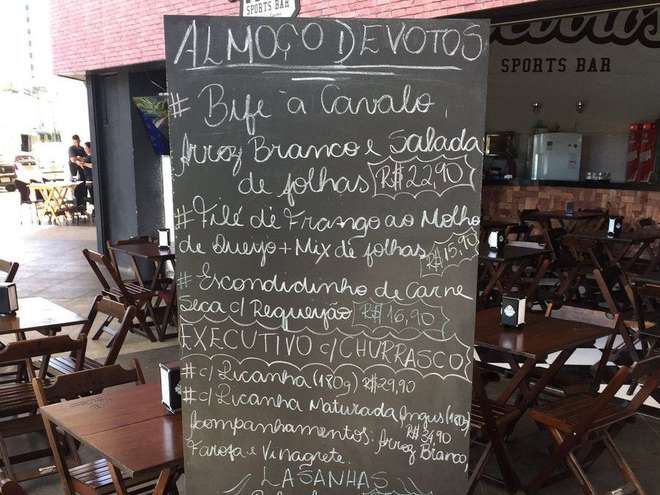 SPORTS BAR
SPORTS BAR
ALMOÇO DEVOTOS
# Bife à Cavalo,
Arroz Branco e Salada
de folhas R$ 22,90
# Filé de Frango ao Molho
de Queijo + Mix de folhas R$ 15,90
# Escondidinho de Carne
Seca c/ Requeijão R$ 16,90
EXECUTIVO c/ CHURRASCO
# c/ Picanha (180g) R$ 29,90
# c/ Picanha Maturada Angus
R$ 34,90
Acompanhamentos: Arroz Branco,
Farofa e Vinagrete.
LASANHAS